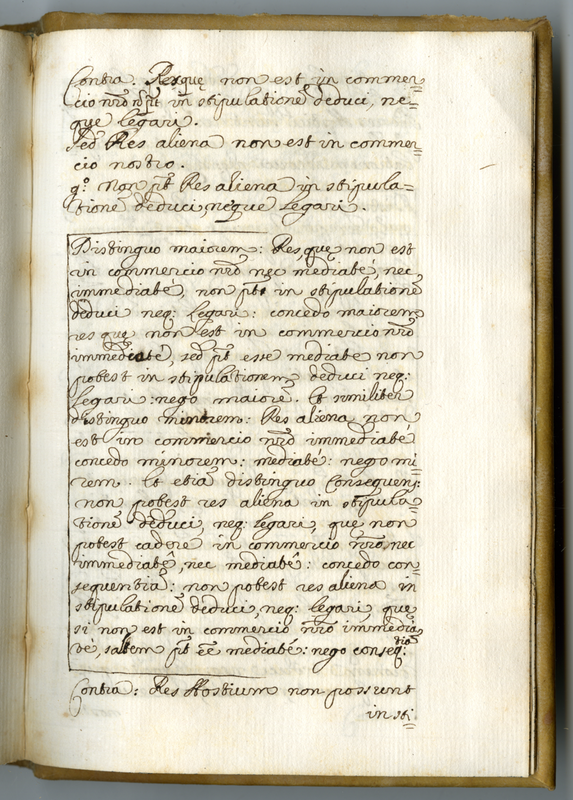 Contra: Res quę non est in commer=
cio nr̃o in stipulationē deduci, ne=
que legari.
Sed Res aliena non est in commer=
cio nostro.
gº. non pt̃ Res aliena in stipula=
tione deduci, neque legari.
Distinguo maiorem: Res quę non est
in commercio nr̃o nec mediatè, nec
immediatè, non pt̃ in stipulationē
deduci neq: legari: concedo maiorem
res quę non est in commercio nr̃o
immediatè, sed pt̃ esse mediatè non
potest in stipulationem deduci neq:
legari: nego maiorē. Et similiter
distinguo minorem: Res aliena non
est in commercio nr̃o immediatè
concedo minorem: mediatè: nego mi=
rem. Et etiã distinguo Consequens:
non potest res aliena in stipula=
tionē deduci, neq: legari, quę non
potest cadere in commercio nr̃o, nec
immediatè, nec mediatè: concedo con=
sequentiã: non potest res aliena in
stipulationē deduci, neq: legari quę
si non est in commercio nr̃o immedia
tè, saltem pt̃ eẽ mediatè: nego conseq:tiã
Contra: Res Hostium non possunt
in sti=